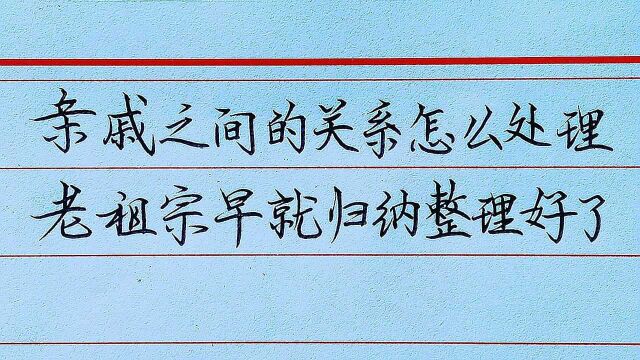 亲戚之间的关系怎么处理
老祖宗早就归纳整理好了